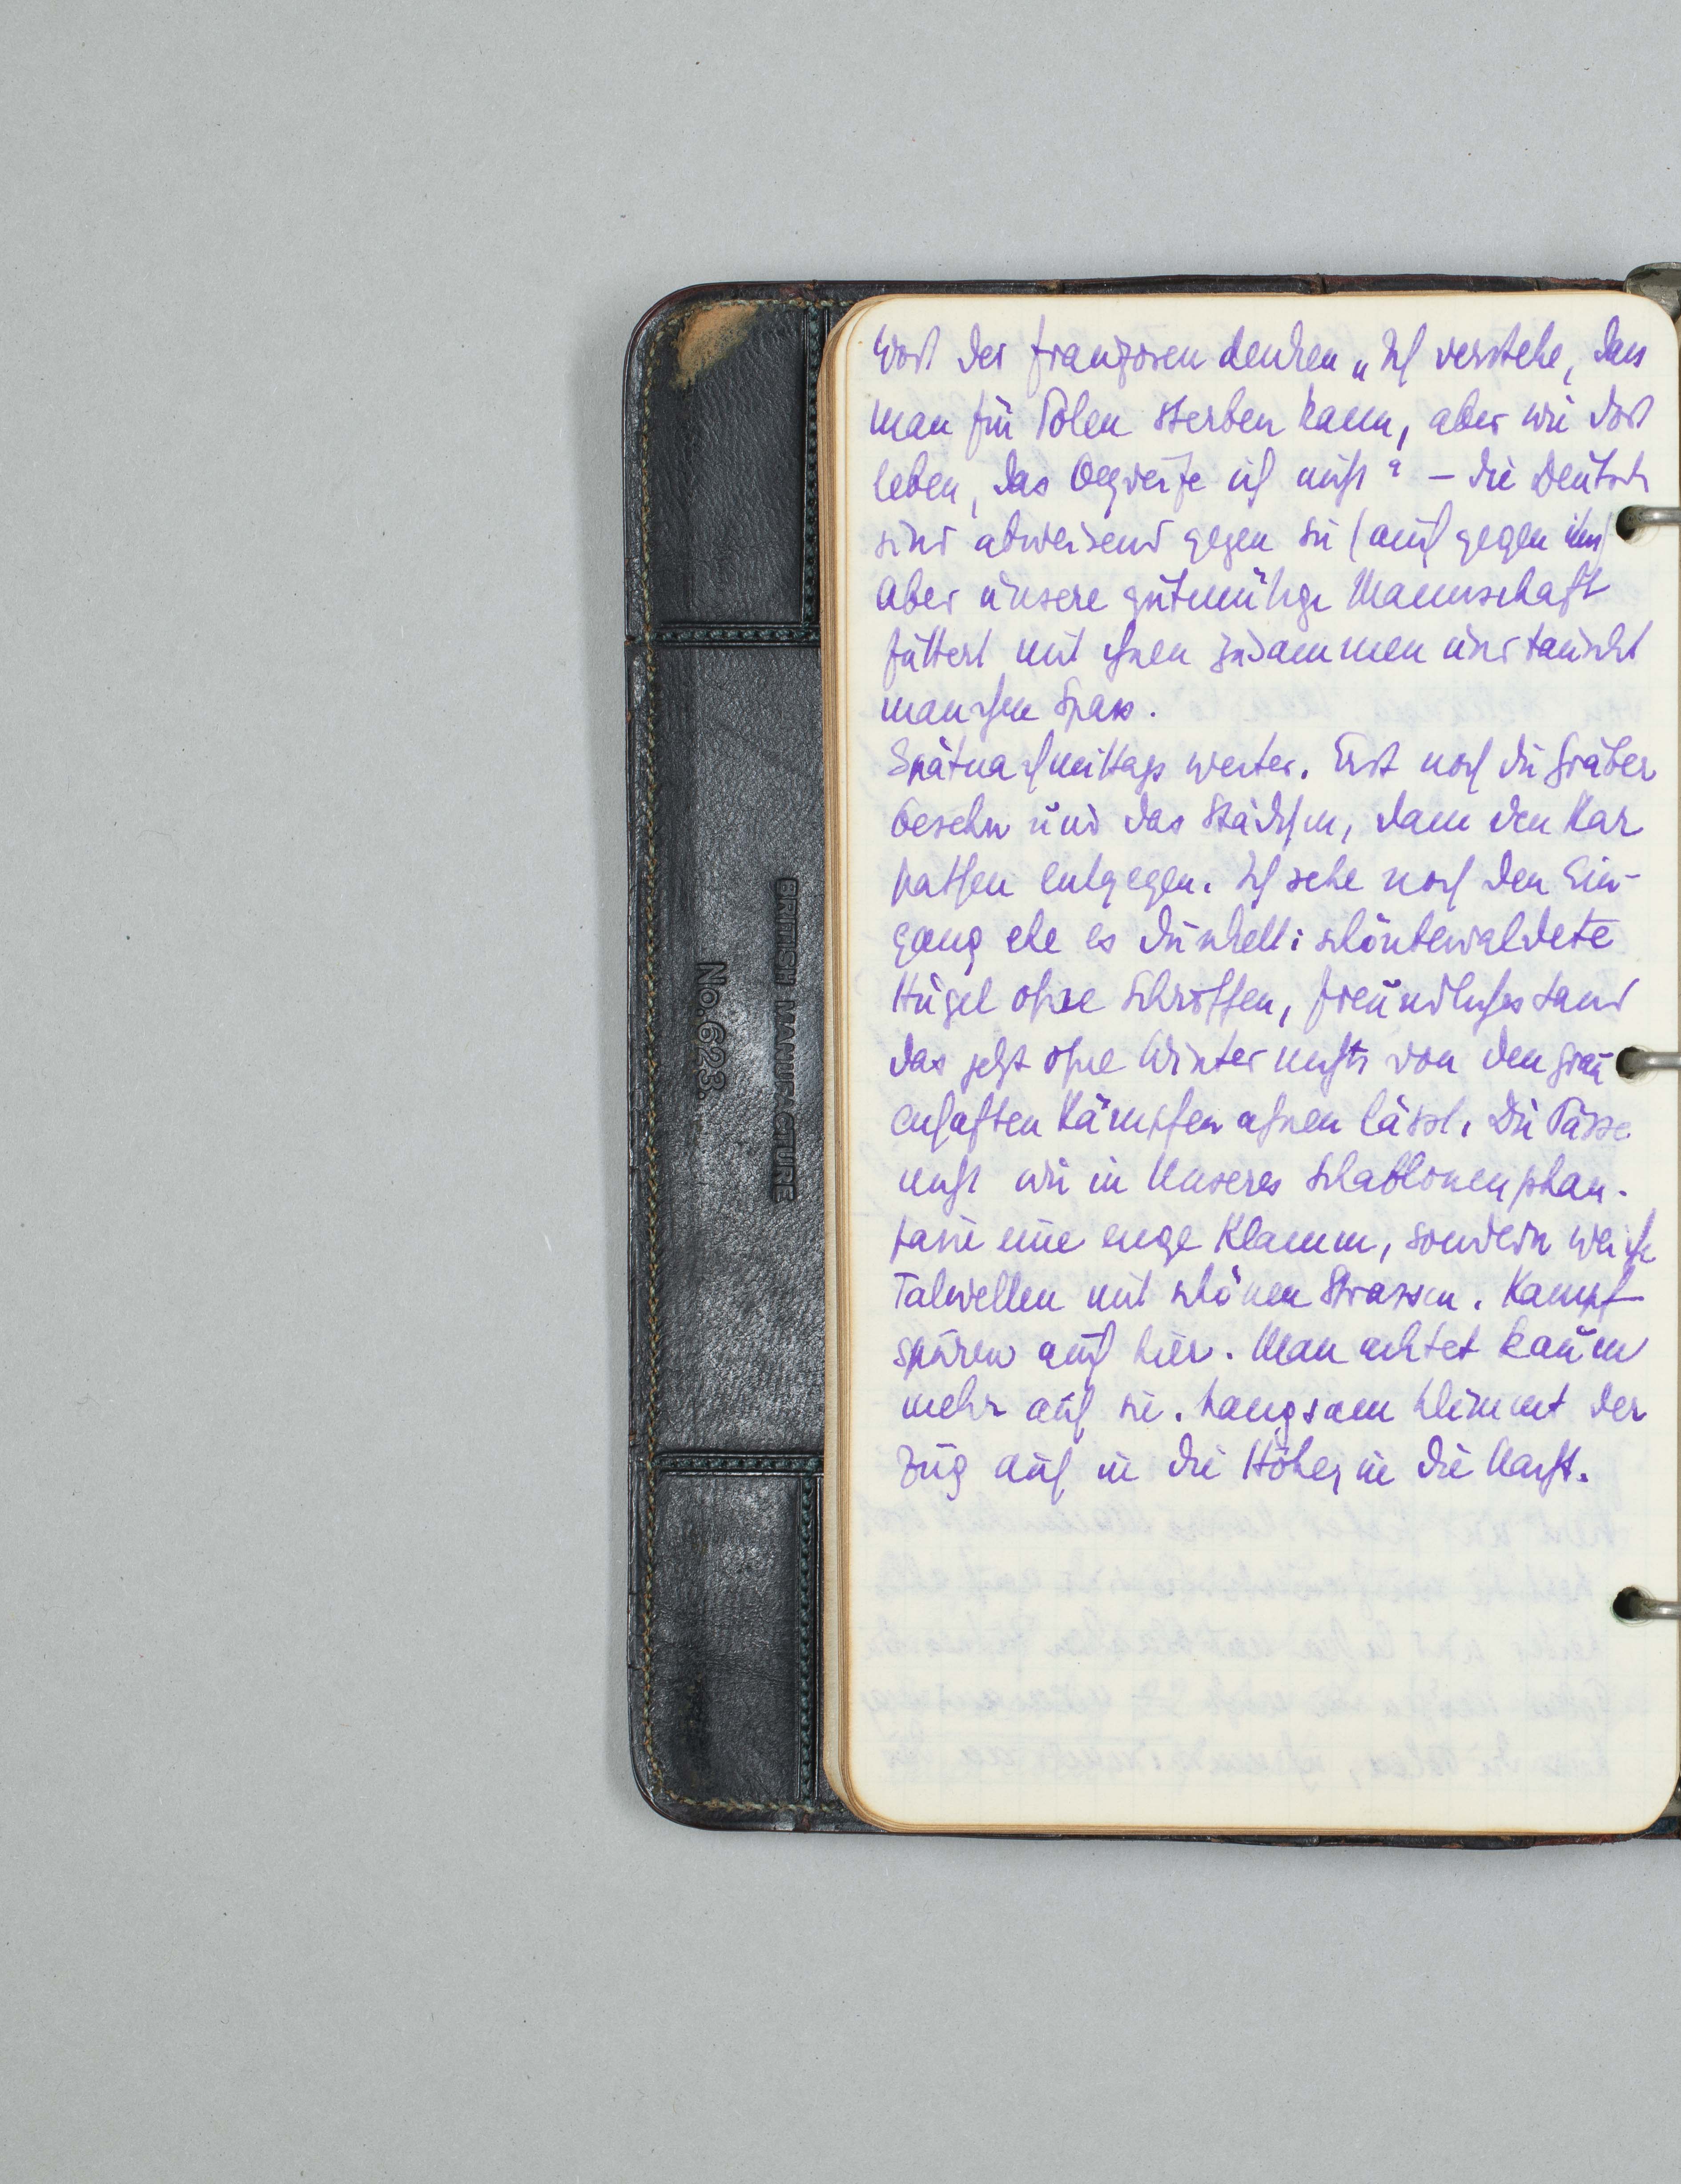 Wort der Franzosen denken „Ich verstehe, dass
man für Polen sterben kann, aber wie dort
leben, das begreife ich nicht" – die Deutsch
sind abweisend gegen sie (auch gegen ihn)
aber unsere gutmütige Mannschaft
füttert mit ihnen zusammen und tauscht
manchen Spass.
Spätnachmittags weiter. Erst noch die Gräber
besehn und das Städtchen, dann den Kar
pathen entgegen. Ich sehe noch den Ein-
gang ehe es dunkelt: schönbewaldete
Hügel ohne Schroffen, freundliches Land
das jetzt ohne Winter nichts von den grau
enhaften Kämpfen ahnen lässt. Die Pässe
nicht wie in unserer Schablonenphan-
tasie eine enge Klamm, sondern weiche
Talwellen mit schönen Strassen. Kampf
spuren auch hier. Man achtet kaum
mehr auf sie. Langsam klimmt der
Zug auf in die Höhe, in die Nacht.
BRITISH MANUFACTURE
No. 623.